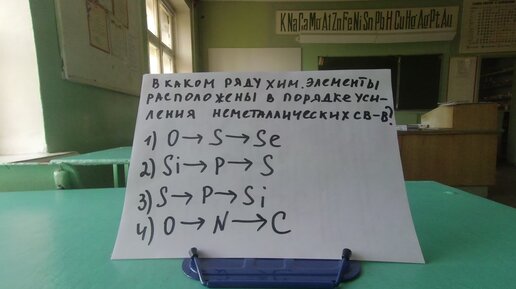 K Na Ca Mg Al Zn Fe Ni Sn Pb H Cu Hg Ag Pt Au
В КАКОМ РЯДУ ХИМ. ЭЛЕМЕНТЫ
РАСПОЛОЖЕНЫ В ПОРЯДКЕ УСИ-
ЛЕНИЯ НЕМЕТАЛЛИЧЕСКИХ СВ-В?
1) O→S→Se
2) Si→P→S
3) S→P→Si
4) O→N→C